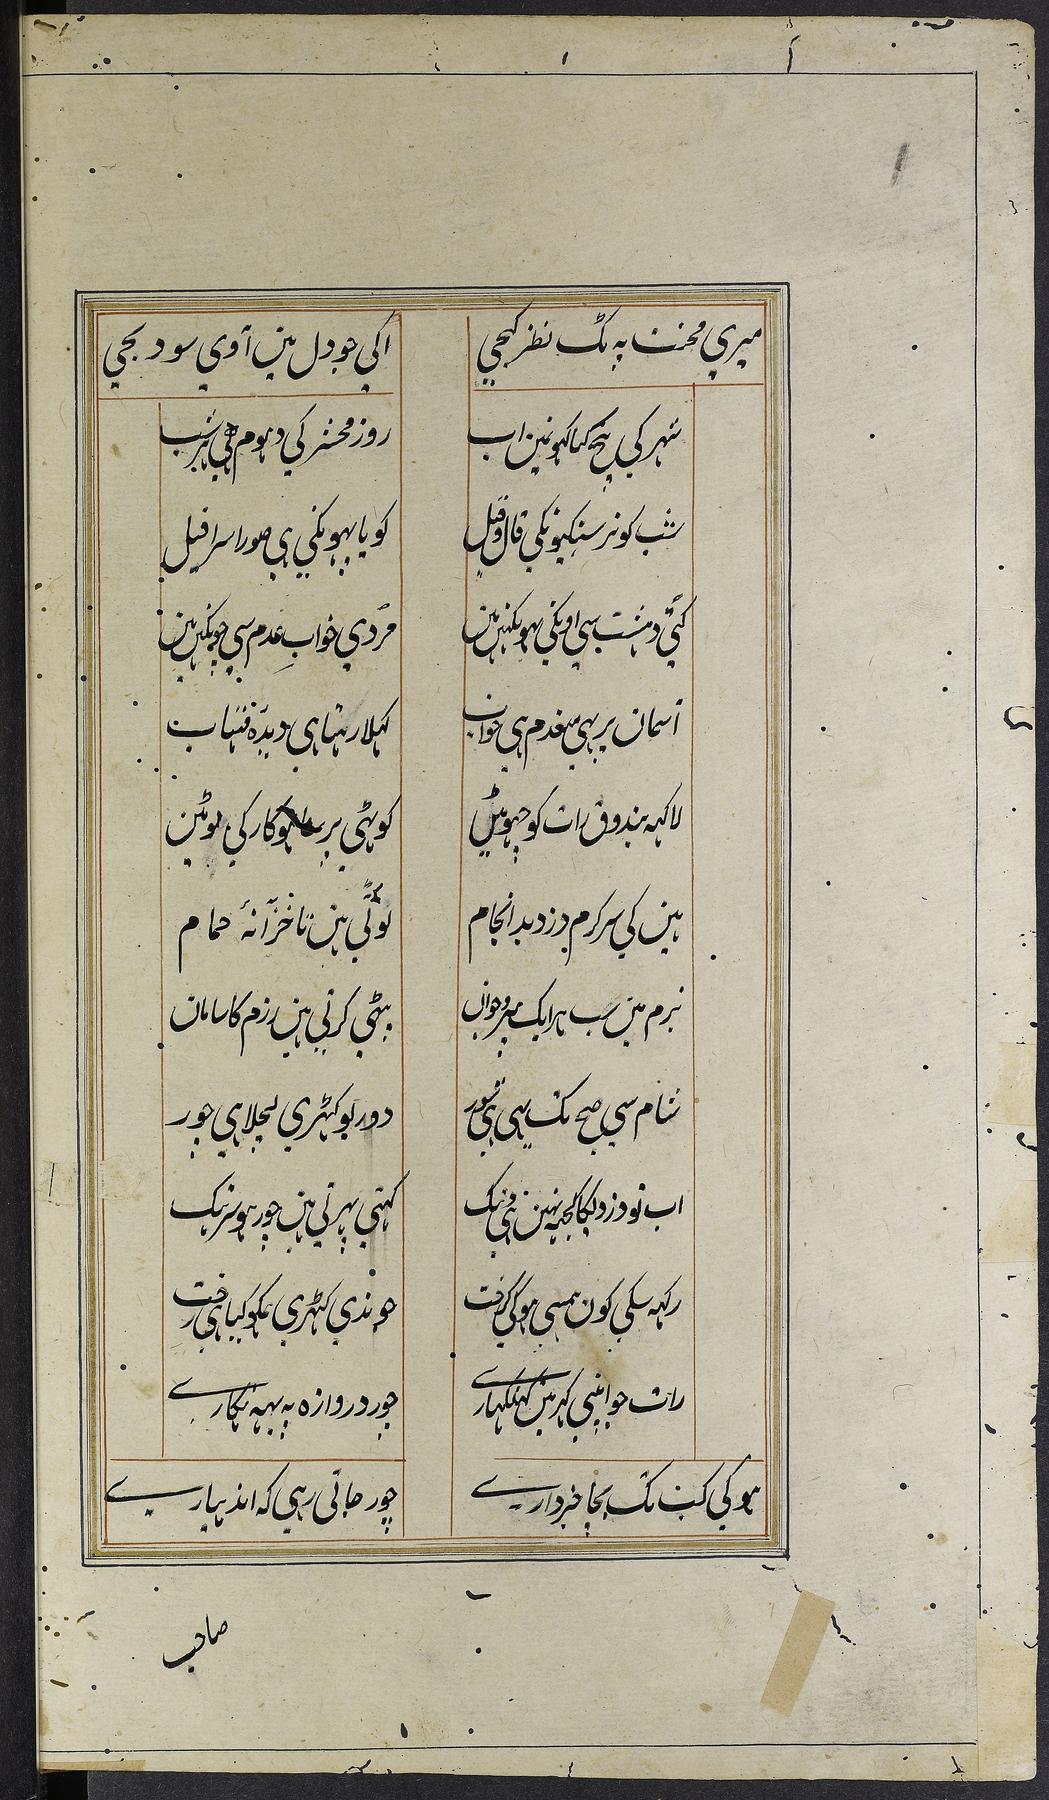 میری محنت پہ ٹک نظر کیجی
اکی جو دل مین آوی سو دیجی
شہر کی بیچ کیا کہونمین اب
روز محشر کی دہوم ہی ہر شب
شب کو نرسنکیونکی قال و قیل
کویا پہونکی ہی صور اسرافیل
کئی دہشت سی اونکی بہونکہین ہین
مردی خواب عدم سی چونکین ہین
آسمان پر بہی منعدم ہی خواب
کہلا رہتا ہی دیدہ
لاکہہ بندوق رات کو چہوٹین
کوٹہی پر ساہوکار کی لوٹین
ہین کی سرکرم دزد بد انجام
لوٹی ہین تا خزانۂ حمام
بزم مین سب ہر ایک پیر و جوان
بیٹہی کرتی ہین رزم کا سامان
شام سی صبح تک یہی ہی شور
دوریو کٹہری لیچلا ہی چور
اب تو دزدیکا کچہہ نہین ہی ننک
کہتی پہرتی ہین چور ہو سرہنک
رکہہ سکی کون ہمسی ہوکی کرخت
چوندی کٹہری ہمکو کیا ہی رخت
رات جو اپنی کہر مین کہنکہاری
چور دروازہ پہ یہہ پکاری
ہوکی کب تک بچا خبرداری
چور جاتی رہی کہ اندہیاری
صاحب